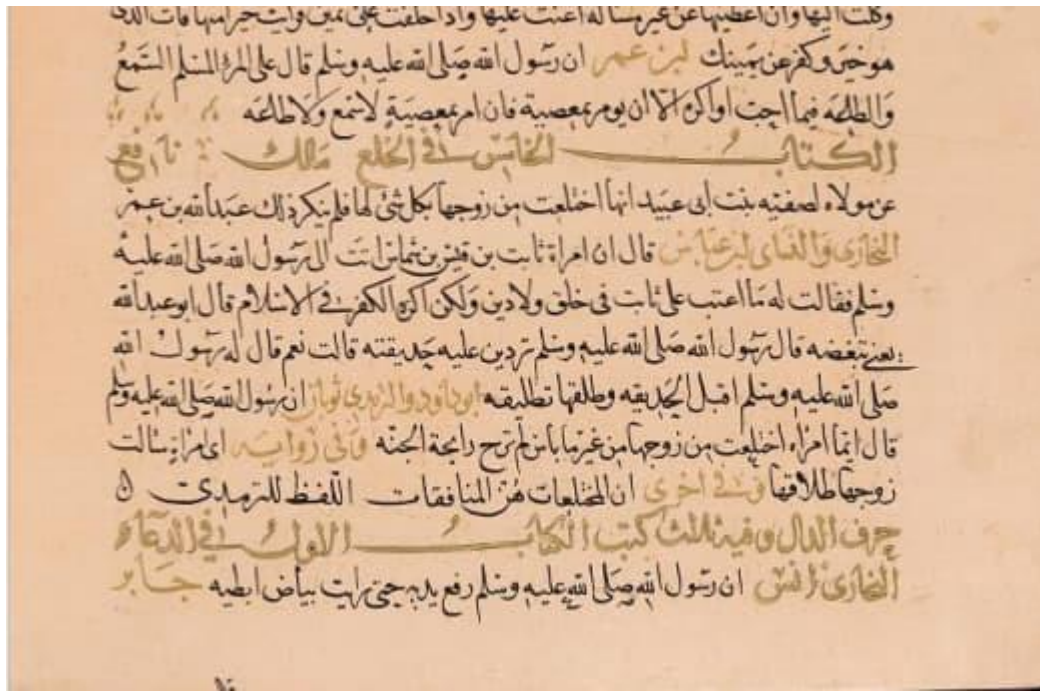 وكلت اليها وان اعطيتها عن غير مسألة اعنت عليها واذا حلفت على يمين ورأيت خيرا منها فات الذى
هو خير وكفر عن يمينك ابن عمر ان رسول الله صلى الله عليه وسلم قال على المرء المسلم السمع
والطاعة فيما احب او اكره الا ان يومر بمعصية فان امر بمعصية لا سمع ولا طاعه
الكتاب الخامس فى الخلع مالك نافع
عن مولاه لصفيه بنت ابى عبيد انها اختلعت من زوجها بكل شئ لها فلم ينكر ذلك عبد الله بن عمر
البخارى والنساى ابن عباس قال ان امراة ثابت بن قيس بن شماس اتت الى رسول الله صلى الله عليه
وسلم فقالت له ما اعتب على ثابت فى خلق ولا دين ولكن اكره الكفر فى الاسلام قال ابو عبد الله
يعنى تبغضه قال رسول الله صلى الله عليه وسلم تردين عليه حديقته قالت نعم قال له رسول الله
صلى الله عليه وسلم اقبل الحديقه وطلقها تطليقه ابو داود والترمذى ثوبان ان رسول الله صلى الله عليه وسلم
قال ايما امراه اختلعت من زوجها من غير ما باس لم ترح رايحة الجنه وفى رواية اى امراة سالت
زوجها طلاقها وفى اخرى ان المختلعات هن المنافقات اللفظ للترمذى
حرف الدال وفيه ثلاث كتب الكتاب الاول فى الدعاء
البخارى انس ان رسول الله صلى الله عليه وسلم رفع يديه حتى رايت بياض ابطيه جابر